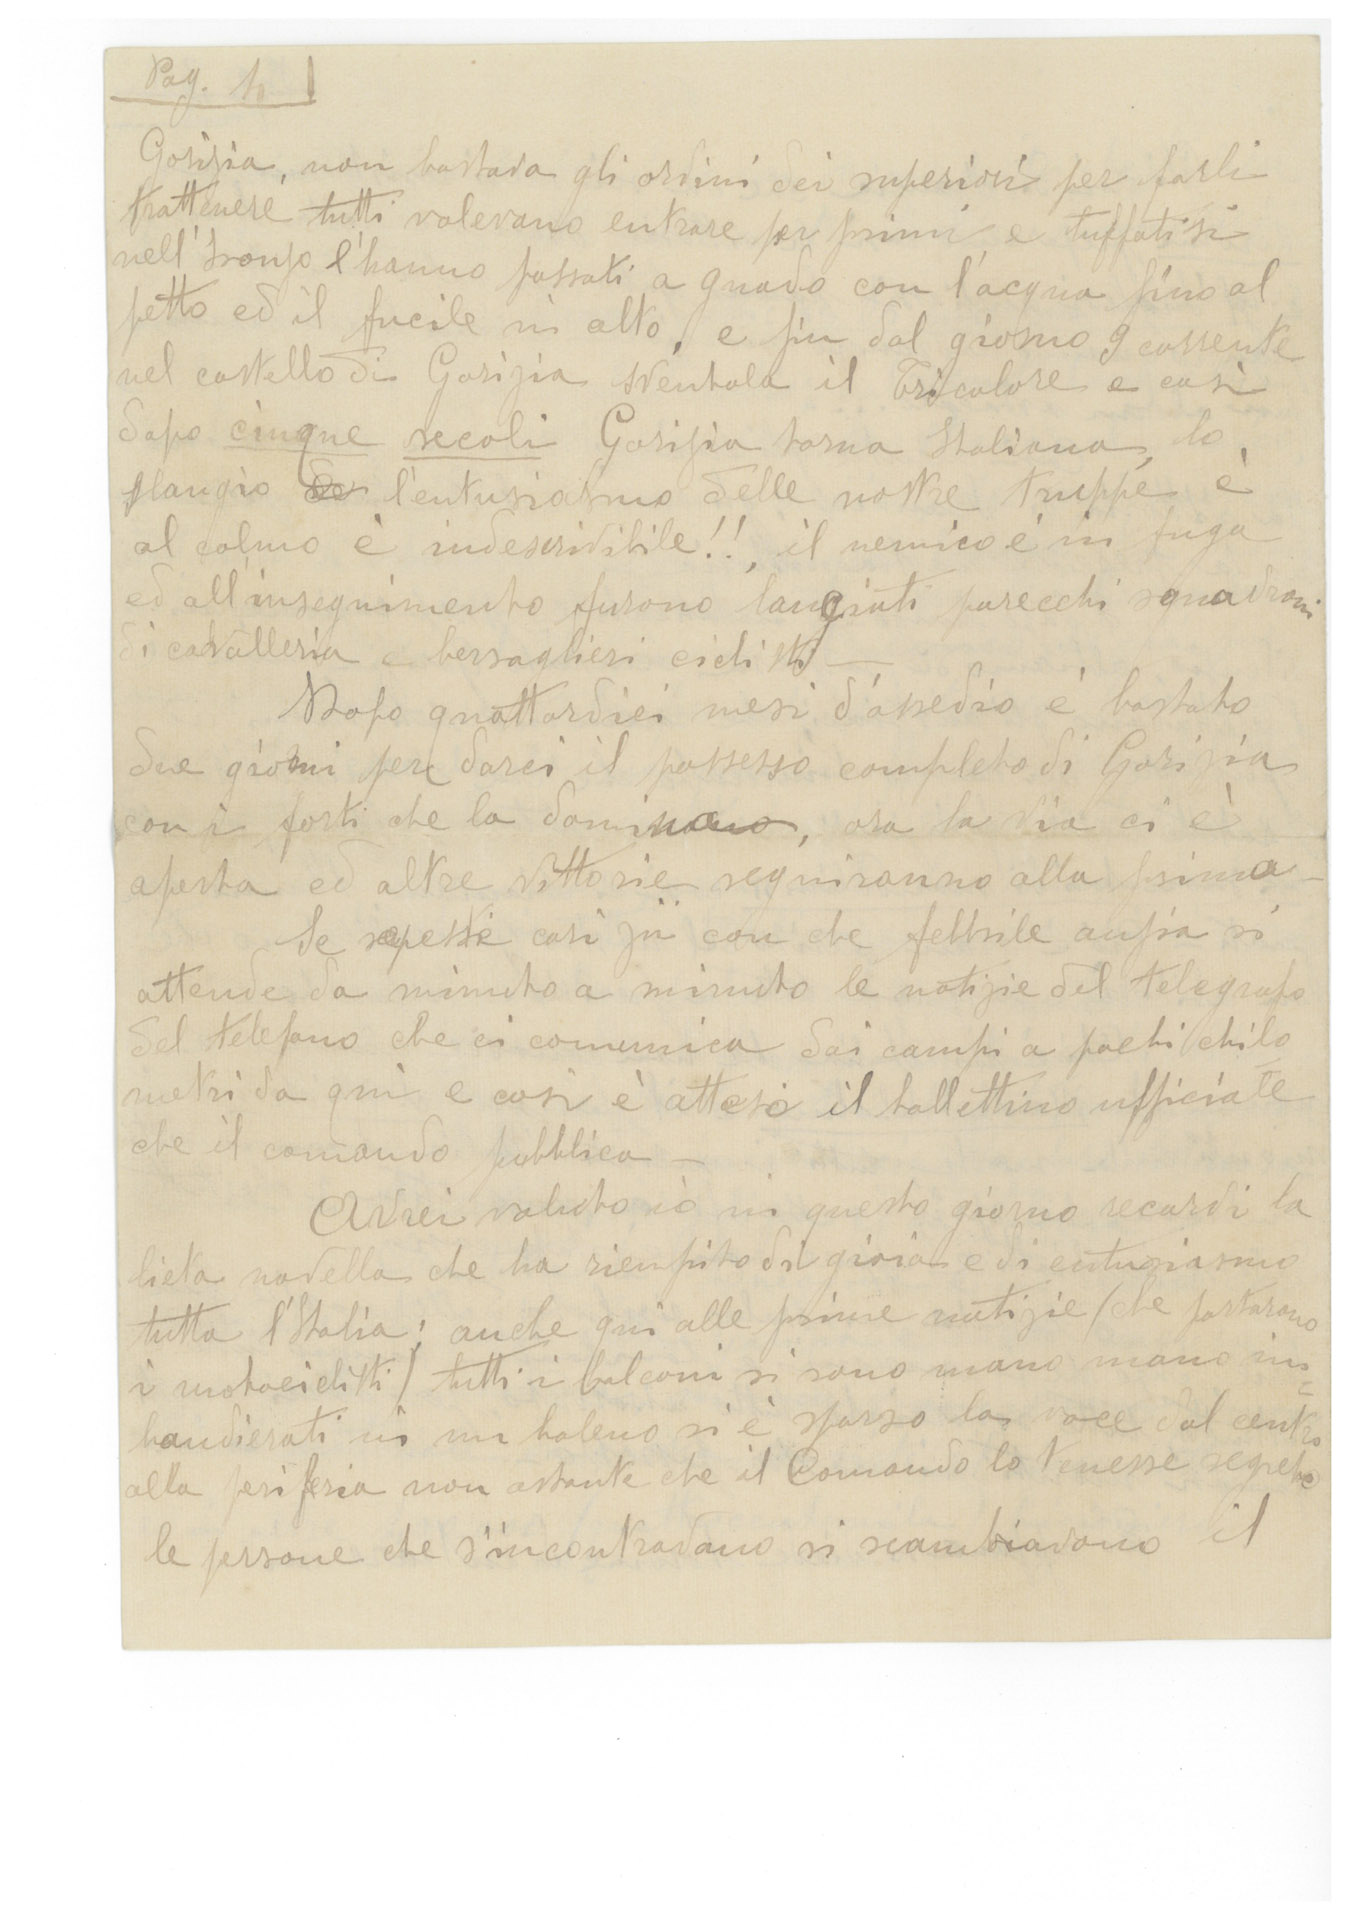 Pag.
Gorizia, non bastava gli ordini dei superiori per farli
trattenere tutti volevano entrare per primi e tuffatisi
nell'Isonzo l'hanno passati a guado con l'acqua fino al
petto ed il fucile in alto, e fin dal giorno 9 corrente
nel castello di Gorizia sventola il Tricolore e così
dopo cinque secoli Gorizia torna Italiana, lo
slangio l'entusiasmo delle nostre truppe è
al colmo è indescrivibile!!, il nemico è in fuga
ed all'inseguimento furono langiati parecchi squadroni
di cavalleria e bersaglieri ciclisti —
Dopo quattordici mesi d'assedio è bastato
due giorni per darci il possesso completo di Gorizia
con i forti che la dominano, ora la via ci è
aperta ed altre vittorie seguiranno alla prima —
Se sapeste così zii con che febbrile ansia si
attende da minuto a minuto le notizie del telegrafo
del telefono che ci comunica dai campi a pochi chilo
metri da qui e così è atteso il bollettino ufficiale
che il comando pubblica —
Avrei voluto io in questo giorno recarvi la
lieta novella che ha riempito di gioia e di entusiasmo
tutta l'Italia; anche qui alle prime notizie (che portarono
i motociclisti) tutti i balconi si sono mano mano im=
bandierati in un baleno si è sparso la voce dal centro
alla periferia non ostante che il Comando lo tenesse segreto
le persone che s'incontravano si scambiavano il